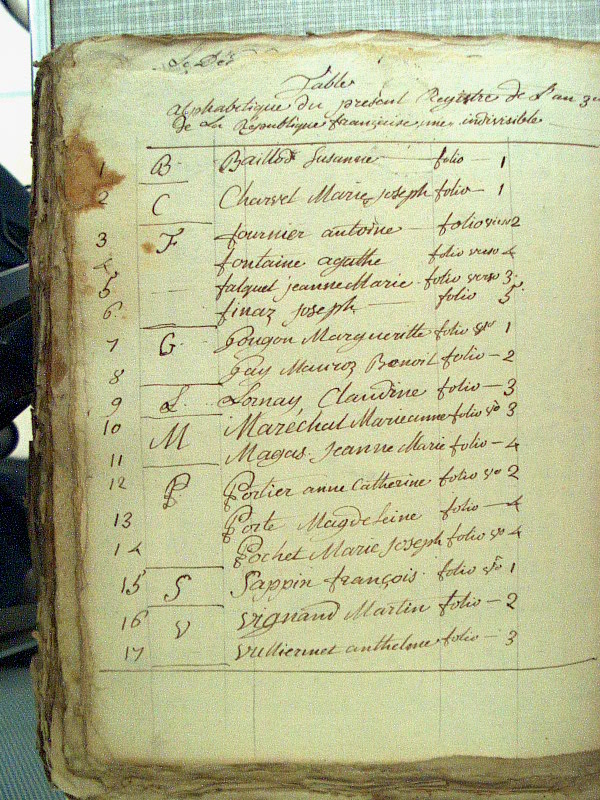 Table
alphabetique du présent Registre de L'an
de La République française, une indivisible
1 B Baillod Susanne folio 1
2 C Charvet Marie joseph folio 1
3 F fournier antoine folio verso 2
4 fontaine agathe folio verso 4
5 falquet jeanne Marie folio verso 3
6 finaz joseph folio 5
7 G Gougon Margueritte folio vso 1
8 Gay Mauroz Benoit folio 2
9 L Lornay Claudine folio 3
10 M Maréchal Marieanne folio vo 3
11 Magas jeanne Marie folio 4
12 P Portier anne Catherine folio vo 2
13 Porte Magdeleine folio 4
14 Pochet Marie Joseph folio vo 4
15 S Sappin françois folio vo 1
16 V Vignand Martin folio 2
17 Vulliermet anthelme folio 3